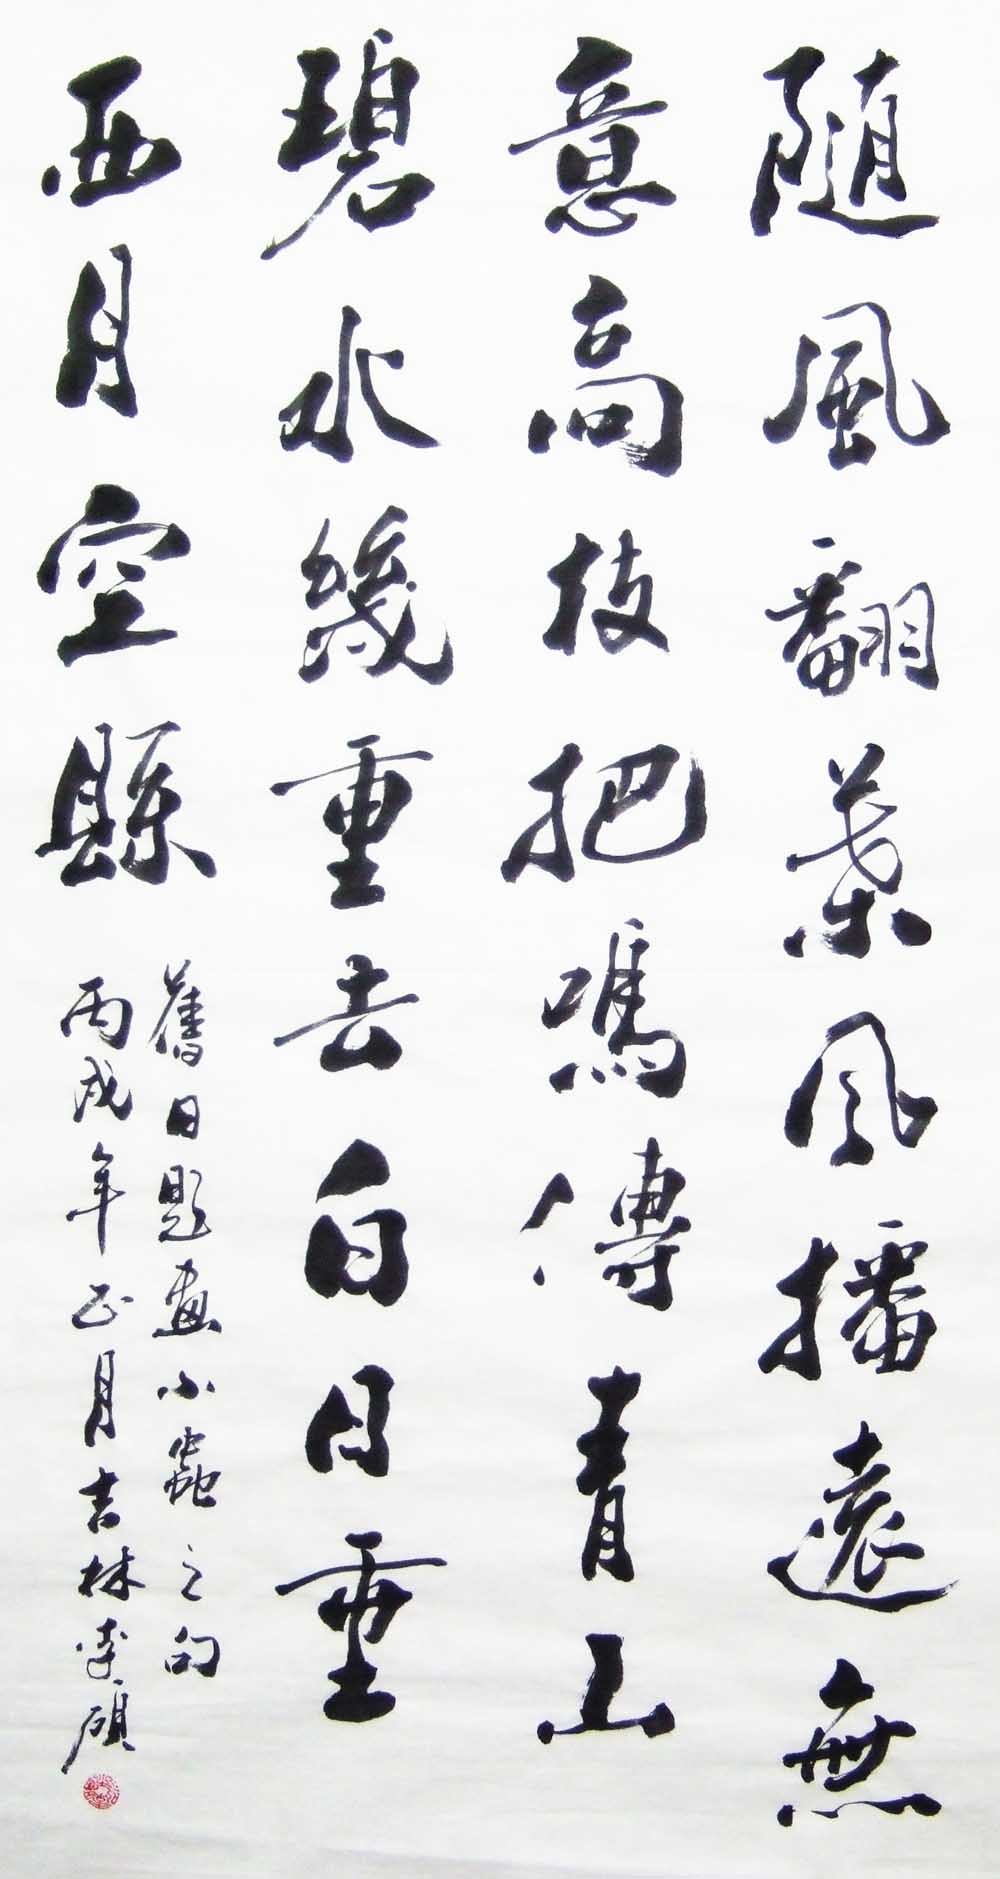 隨風翻葉風播遠無
意高枝把鳴傳青山
碧水幾重去白日重
西月空縣
舊日題畫小蟲之句
丙戌年正月吉林李碩